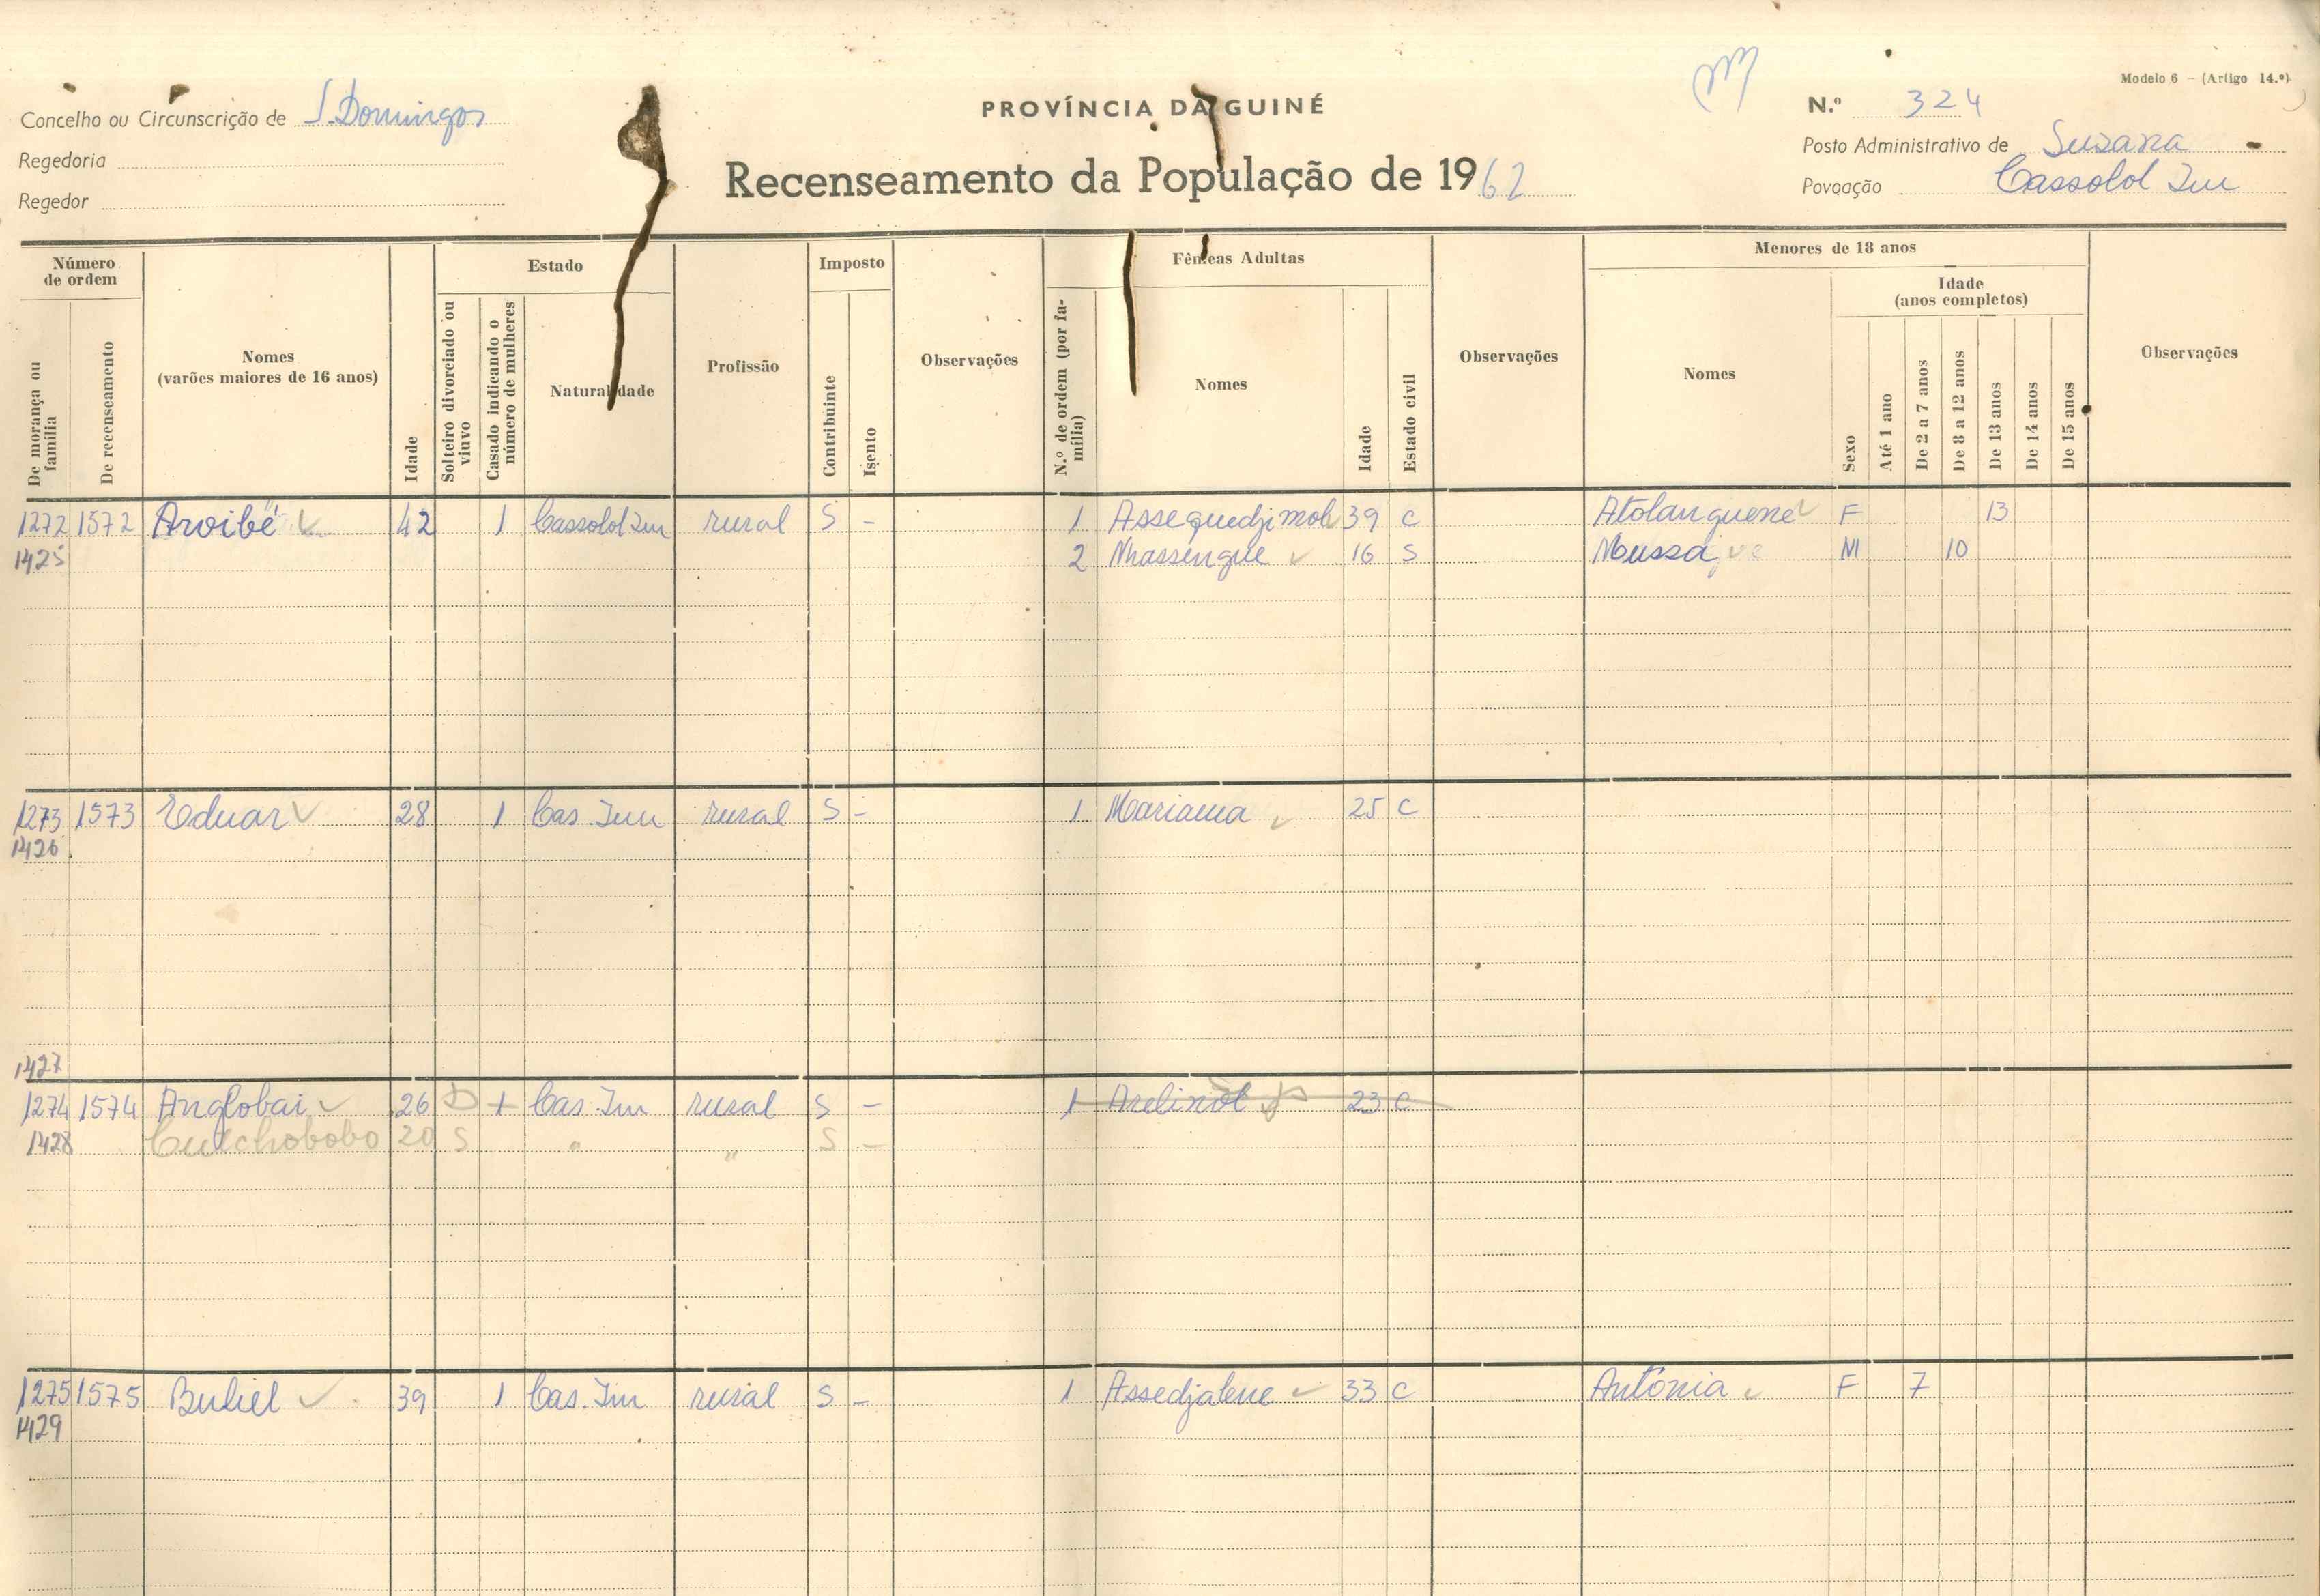 Modelo 6 — (Artigo 14.º)
Concelho ou Circunscrição de S. Domingos
PROVÍNCIA DA GUINÉ
N.º 324
Regedoria
Posto Administrativo de Suzana
Regedor
Recenseamento da População de 1962
Povoação Cassolol Im
Número de ordem
De morança ou família
De recenseamento
Nomes
(varões maiores de 16 anos)
Idade
Estado
Solteiro divorciado ou viuvo
Casado indicando o número de mulheres
Naturalidade
Profissão
Imposto
Contribuinte
Isento
Observações
Fêmeas Adultas
N.º de ordem (por família)
Nomes
Idade
Estado civil
Observações
Menores de 18 anos
Nomes
Sexo
Idade
(anos completos)
Até 1 ano
De 2 a 7 anos
De 8 a 12 anos
De 13 anos
De 14 anos
De 15 anos
Observações
1272 1572 Aroibé 42 1 Cassolol Im rural S - 1 Assequedjimol 39 C Atolanguene F 13
1425 2 Nhassengue 16 S Mussa M 10
1273 1573 Eduar 28 1 Cas. Im rural S - 1 Mariama 25 C
1426
1427
1274 1574 Anglobai 26 D 1 Cas. Im rural S - 1 Arelinol 23 C
1428 Cutchobobo 20 S " " S -
1275 1575 Buliel 39 1 Cas. Im rural S - 1 Assedjalene 33 C Antónia F 7
1429